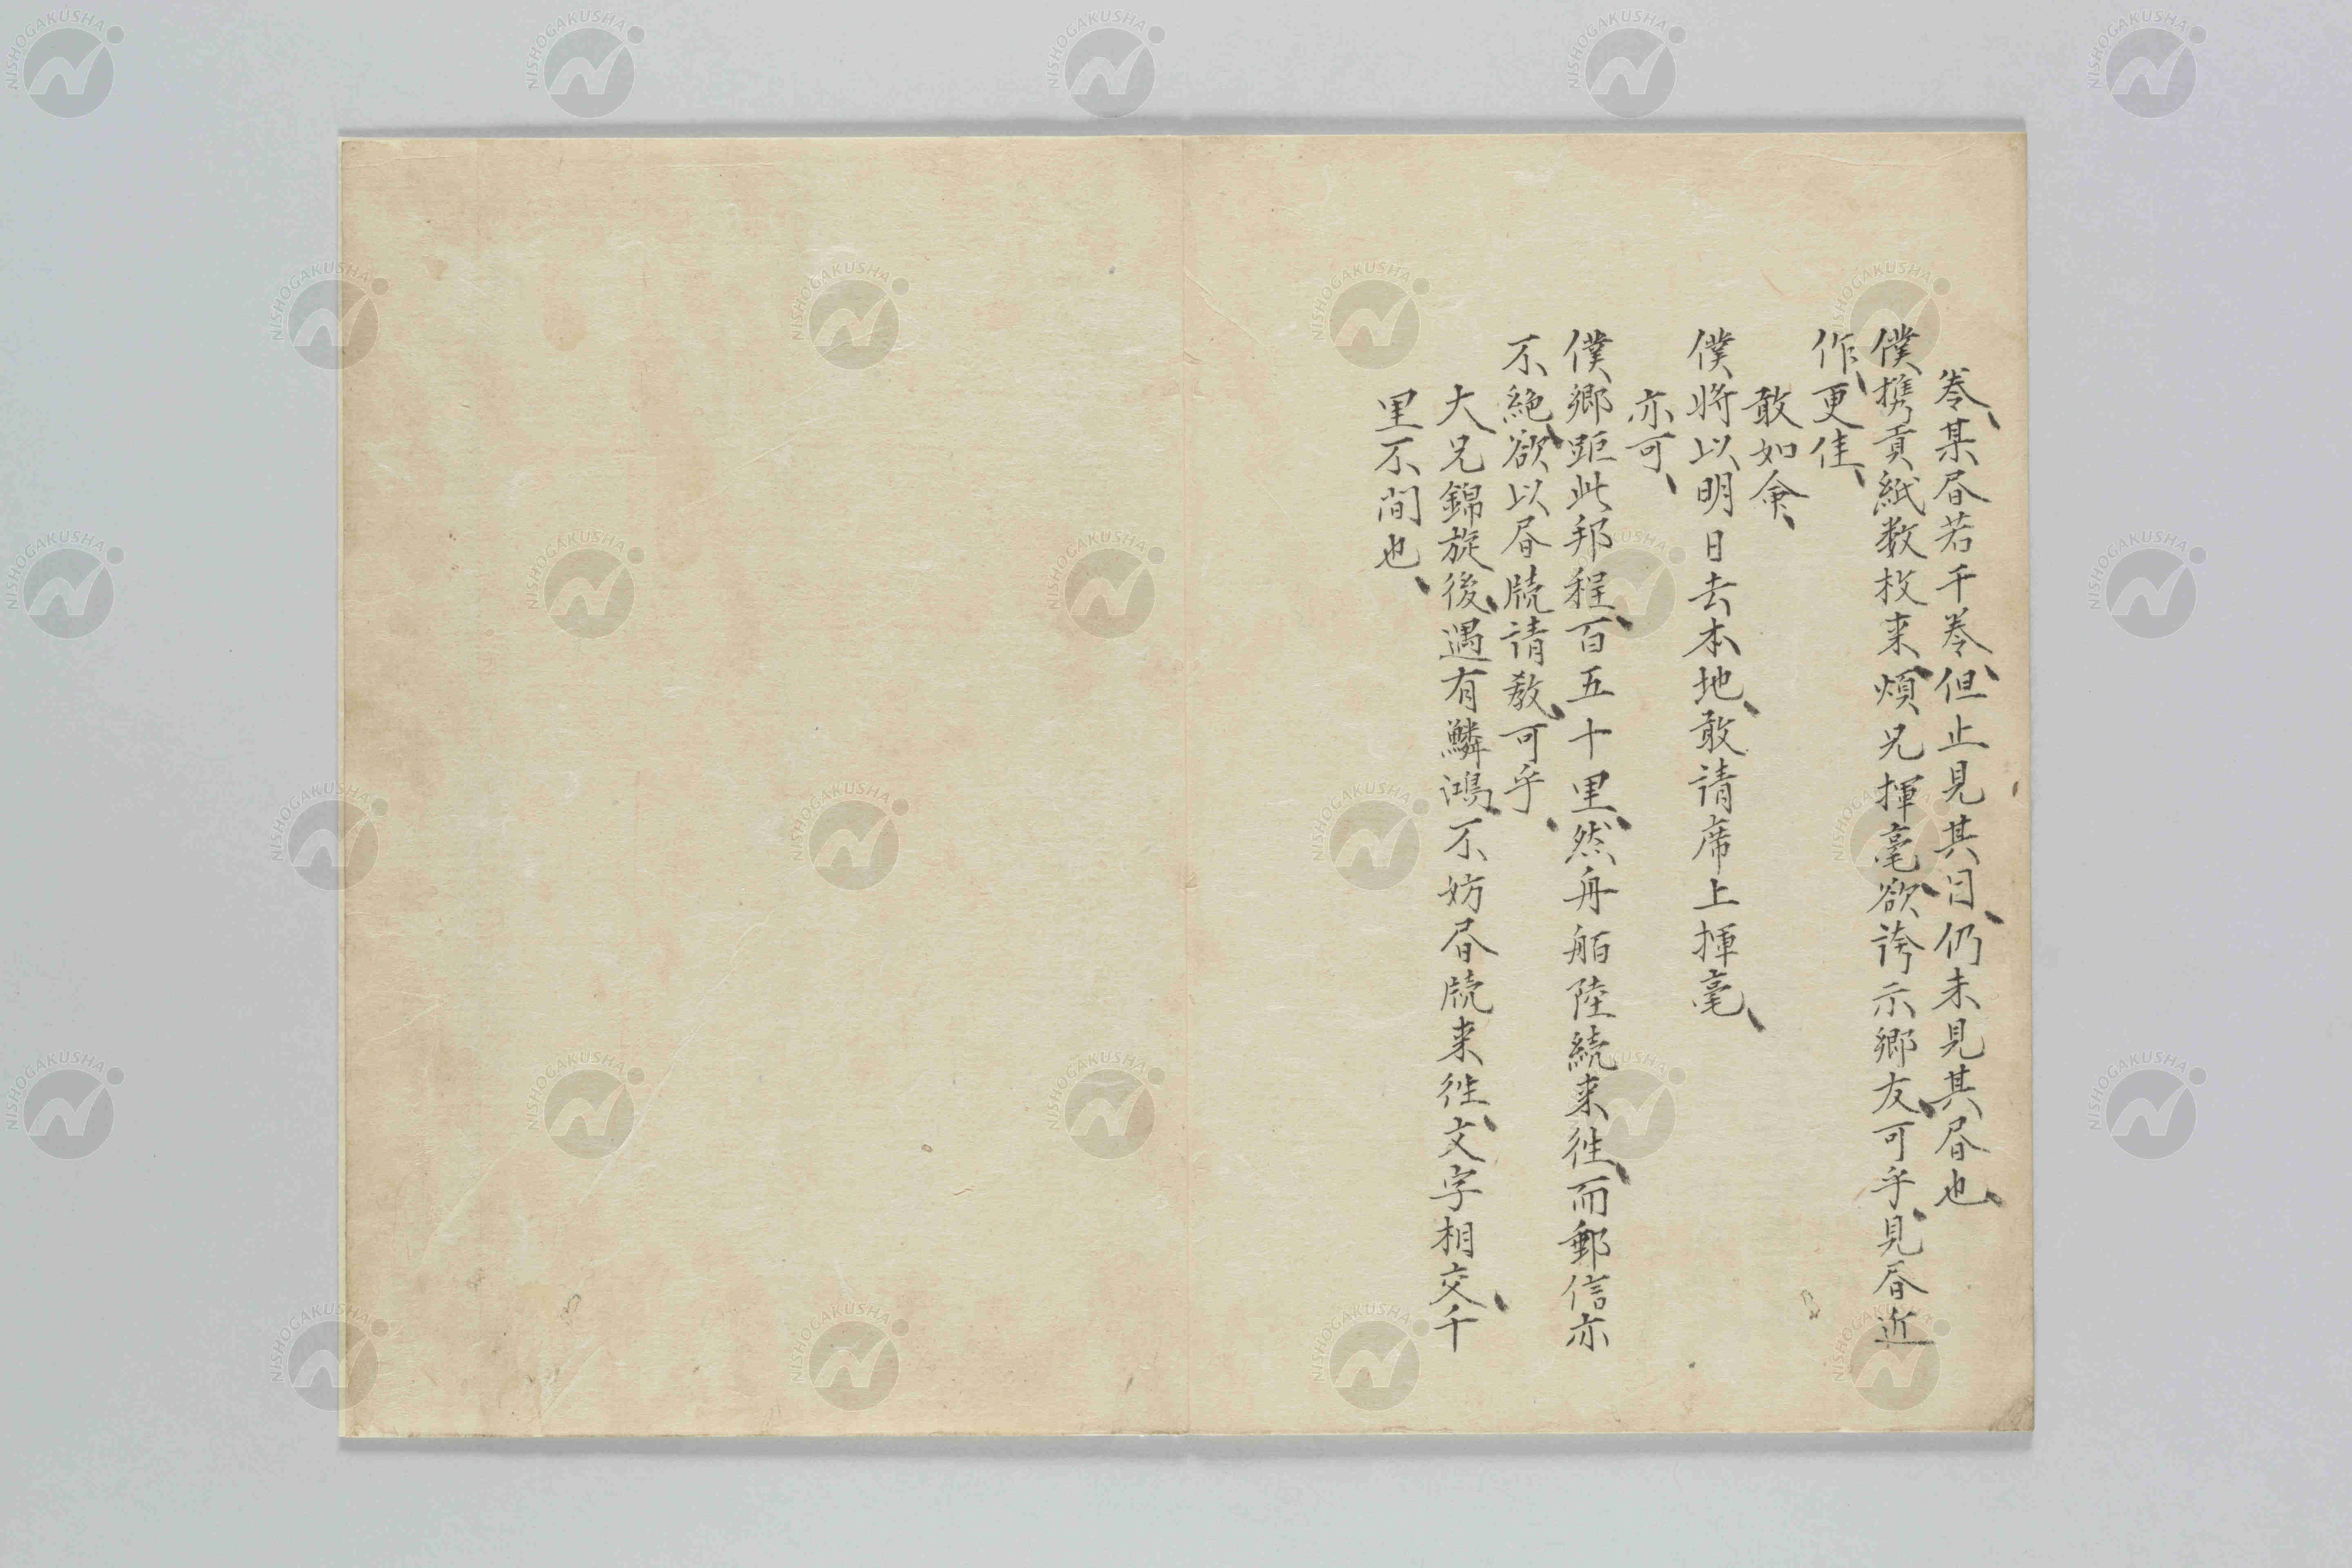 卷、某昏若千卷、但止見其目、仍未見其昏也、
僕携貢紙数枚来、煩兄揮毫、欲誇示郷友、可乎、見昏近
作、更佳、
敢如命、
僕将以明日去本地、敢請席上揮毫、
亦可、
僕郷距此邦程、百五十里、然舟舶陸続来往、而郵信亦
不絶、欲以昏牘請教、可乎、
大兄錦旋後、遇有鱗鴻、不妨昏牘来往、文字相交、千
里不間也、
NISHOGAKUSHA